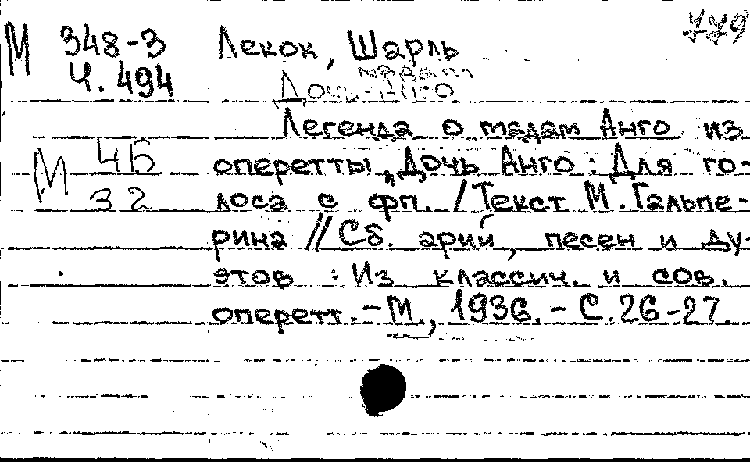 779
М 348-3 Лекок, Шарль
Ч. 494 мадам
Дочь Анго
Легенда о мадам Анго из
М 4Б оперетты „Дочь Анго : Для го-
32 лоса с фп. / Текст М. Гальпе-
рина // Сб. арий, песен и ду-
этов : Из классич. и сов.
оперетт. - М., 1936. - С. 26-27.